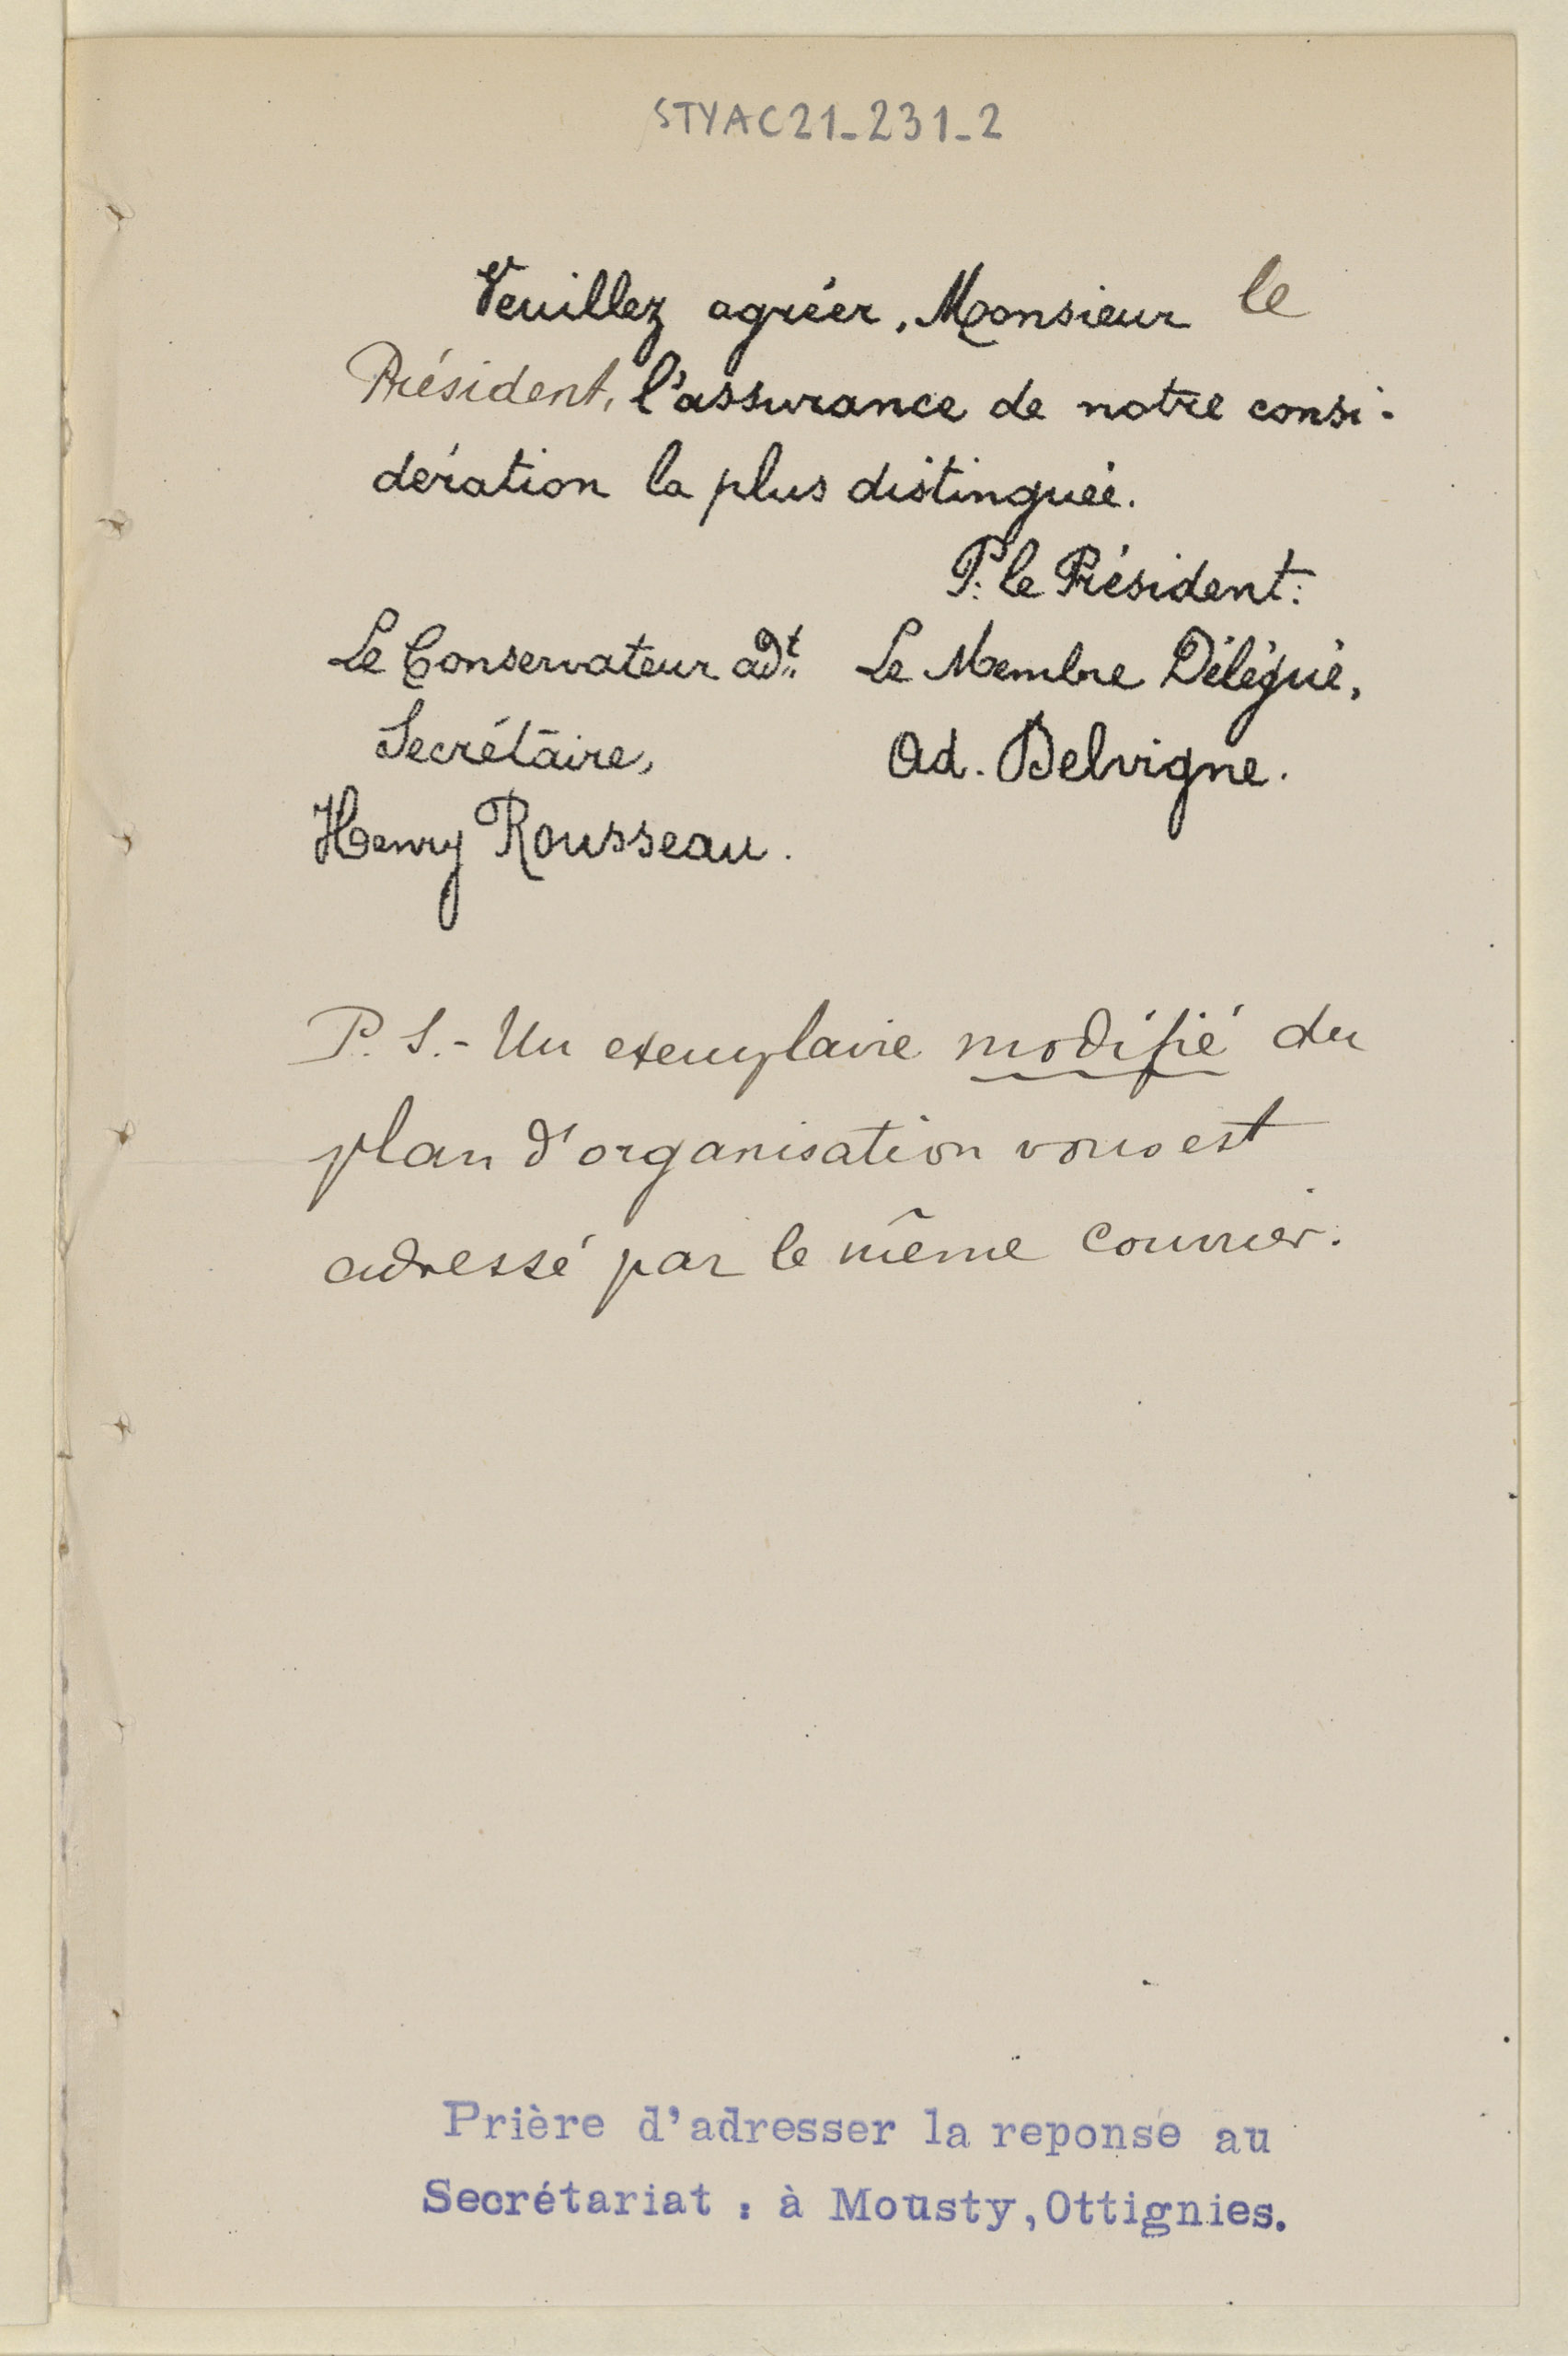 STYAC21_231_2
Veuillez agréer, Monsieur le
Président, l'assurance de notre consi-
dération la plus distinguée.
P. le Président:
Le Conservateur adt Le Membre Délégué,
Secrétaire, Ad. Delvigne.
Henry Rousseau.
P. S.- Un exemplaire modifié du
plan d'organisation vous est
adressé par le même courrier.
Prière d'adresser la reponse au
Secrétariat : à Mousty, Ottignies.